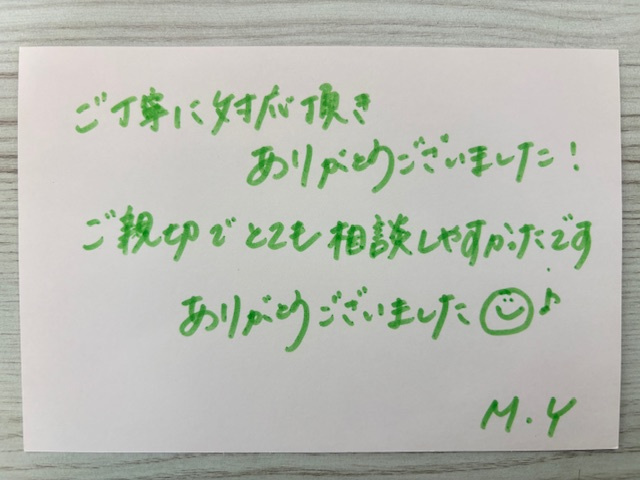 ご丁寧に対応頂き
ありがとうございました！
ご親切でとても相談しやすかったです
ありがとうございました☺♪
M.Y